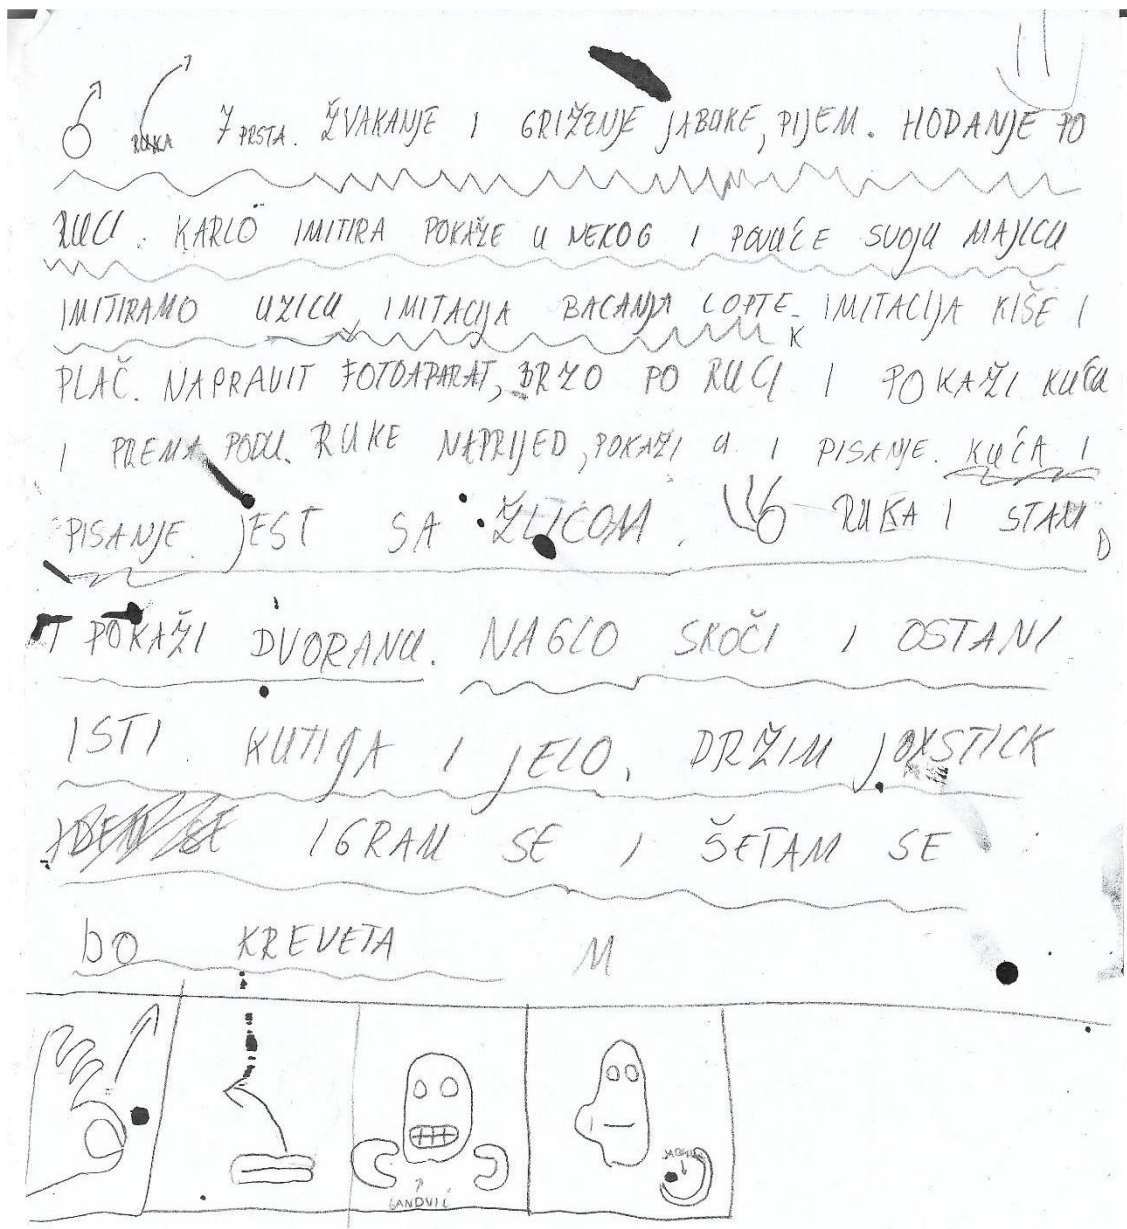 RUKA 7 PRSTA. ŽVAKANJE I GRIŽENJE JABUKE, PIJEM. HODANJE PO
RUCI. KARLO IMITIRA POKAŽE U NEKOG I POVUĆE SVOJU MAJICU
IMITIRAMO UZICU, IMITACIJA BACANJA LOPTE. IMITACIJA KIŠE I
K
PLAČ. NAPRAVIT FOTOAPARAT, BRZO PO RUCI I POKAŽI KUĆU
I PREMA PODU. RUKE NAPRIJED, POKAŽI U I PISANJE. KUĆA I
PISANJE. JEST SA ŽLICOM. RUKA I STAM
D
T POKAŽI DVORANU. NAGLO SKOČI I OSTANI
ISTI KUTIJA I JELO. DRŽIM JOXSTICK
IGRAM SE I ŠETAM SE
DO KREVETA M
SANDVIĆ